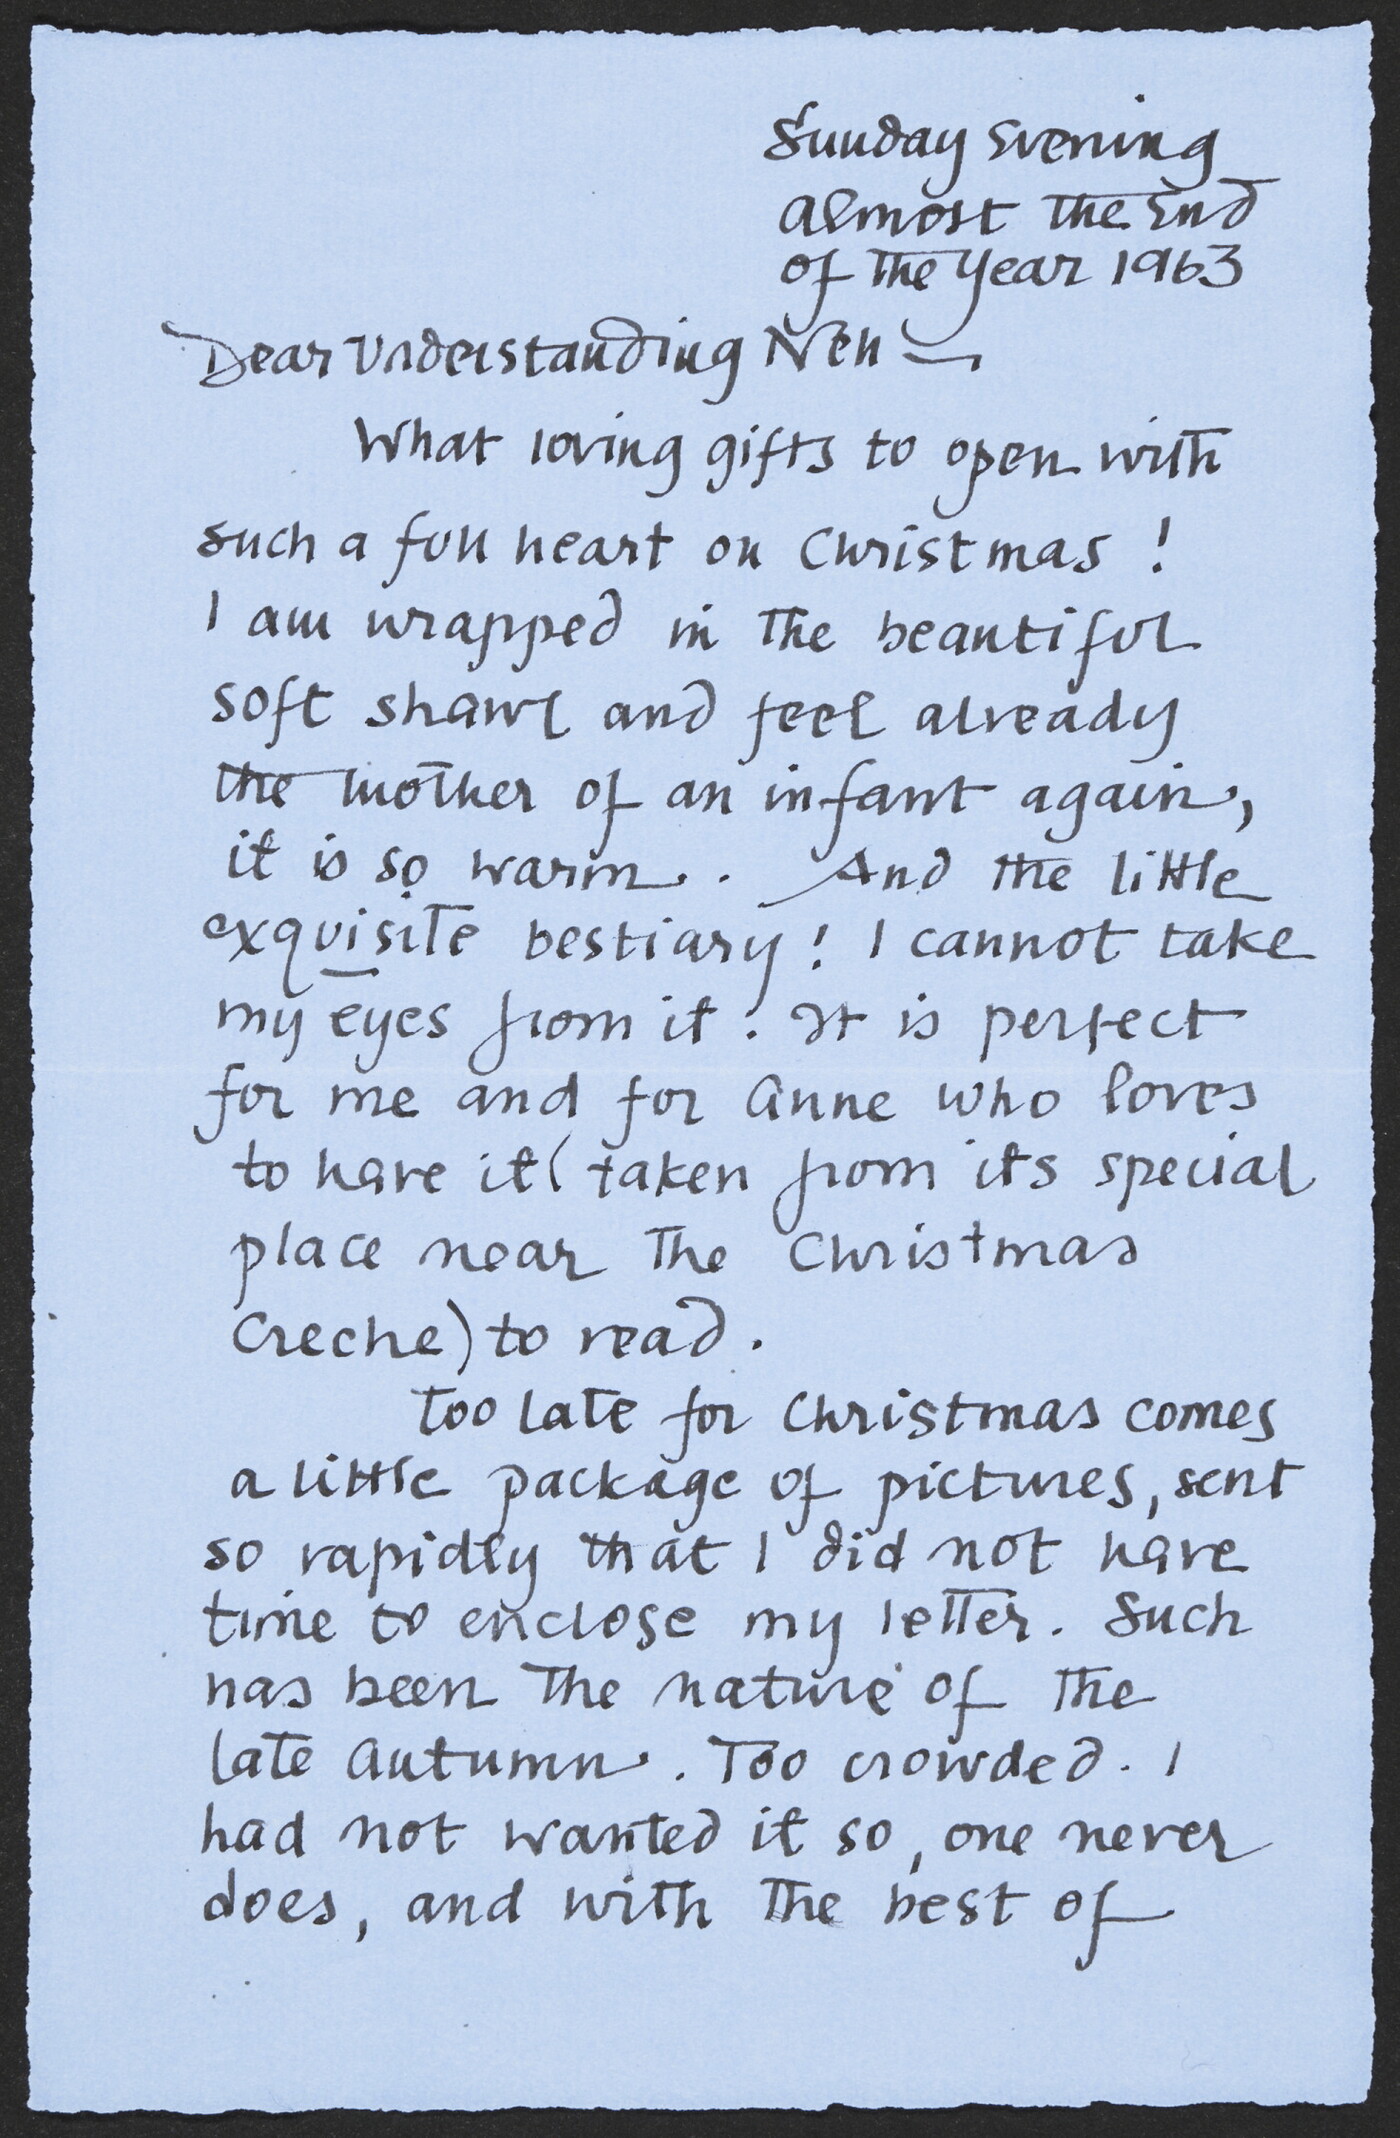 Sunday Evening
Almost the End
of the Year 1963
Dear Understanding Nen —
What loving gifts to open with
such a full heart on Christmas !
I am wrapped in the beautiful
soft shawl and feel already
the mother of an infant again,
it is so warm . And the little
exquisite bestiary ! I cannot take
my eyes from it . It is perfect
for me and for Anne who loves
to have it ( taken from its special
place near the Christmas
Creche) to read .
Too late for Christmas comes
a little package of pictures, sent
so rapidly that I did not have
time to enclose my letter . Such
has been the nature of the
late Autumn . Too crowded . I
had not wanted it so, one never
does, and with the best of